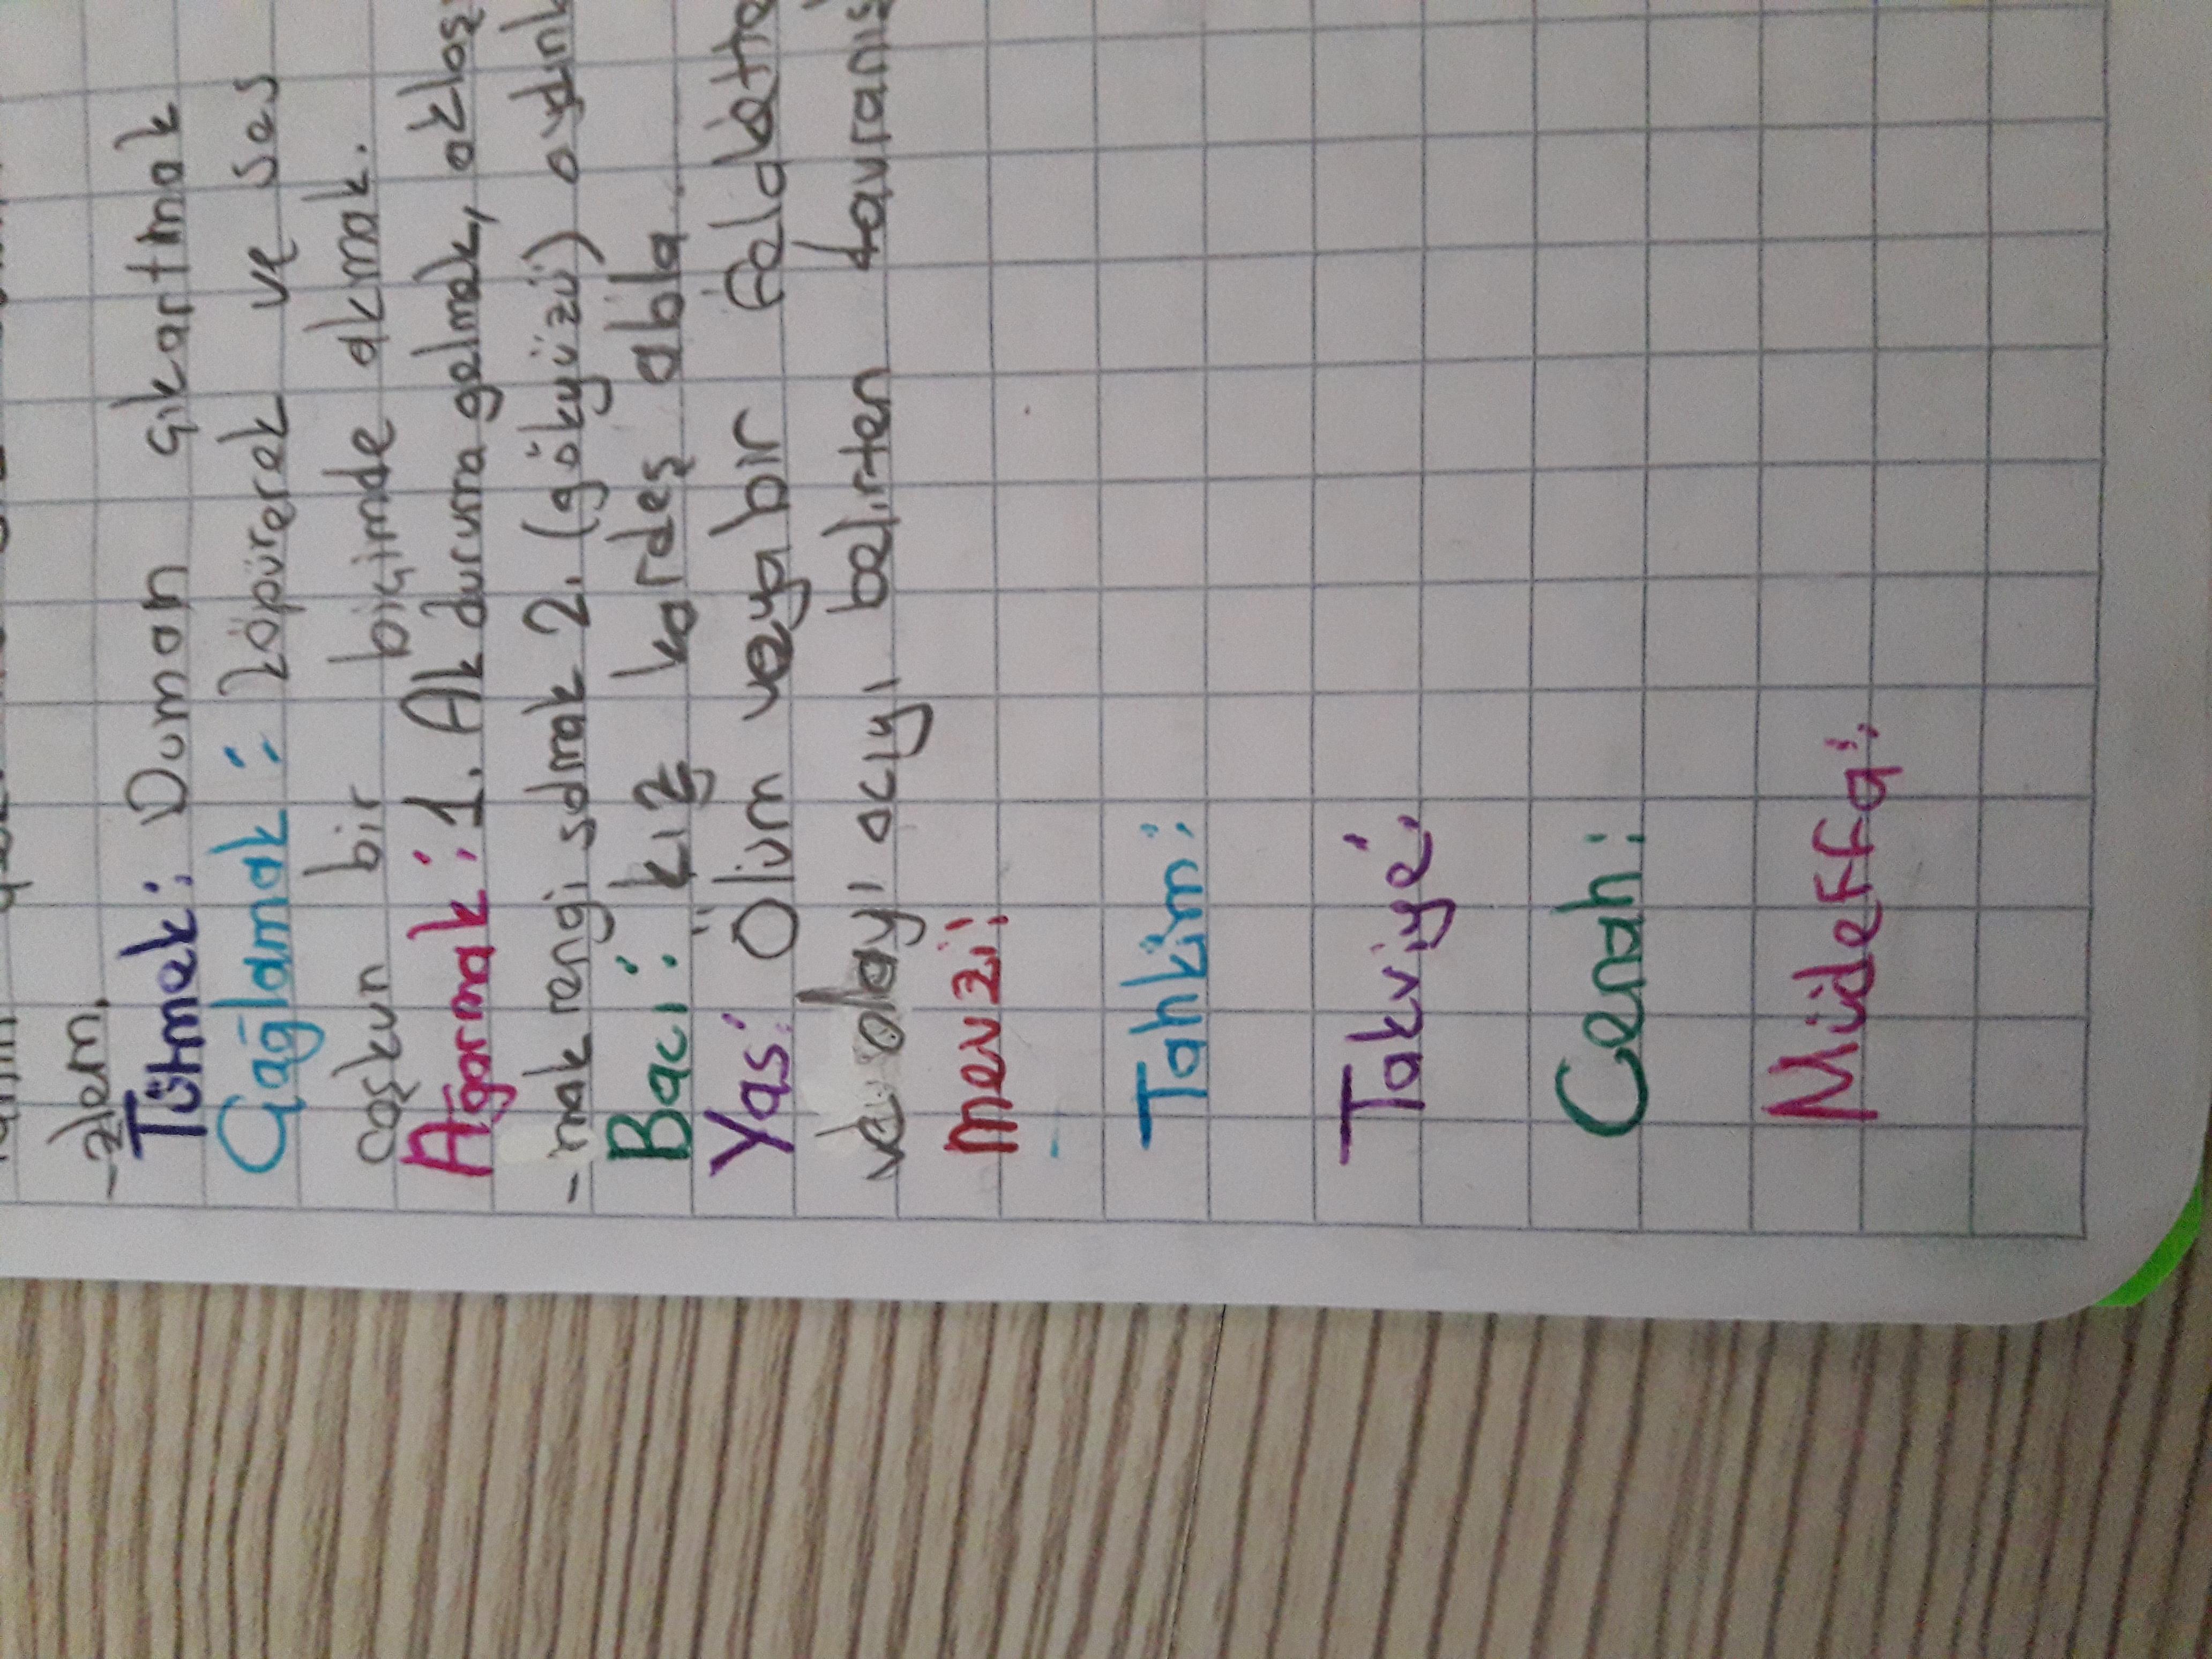 -zlem.
Tütmek: Duman çıkartmak
Çağlamak: köpürerek ve ses
coşkun bir biçimde akmak.
Ağarmak: 1. Ak duruma gelmek, aklaş
-mak rengi solmak 2. (gökyüzü) aydınl
Bacı: kız kardeş abla
Yas: Ölüm veya bir felakette
ve olayı acıyı belirten davranış
mevzi:
Tahkim:
Takviye:
Cenah:
Müdeffa: